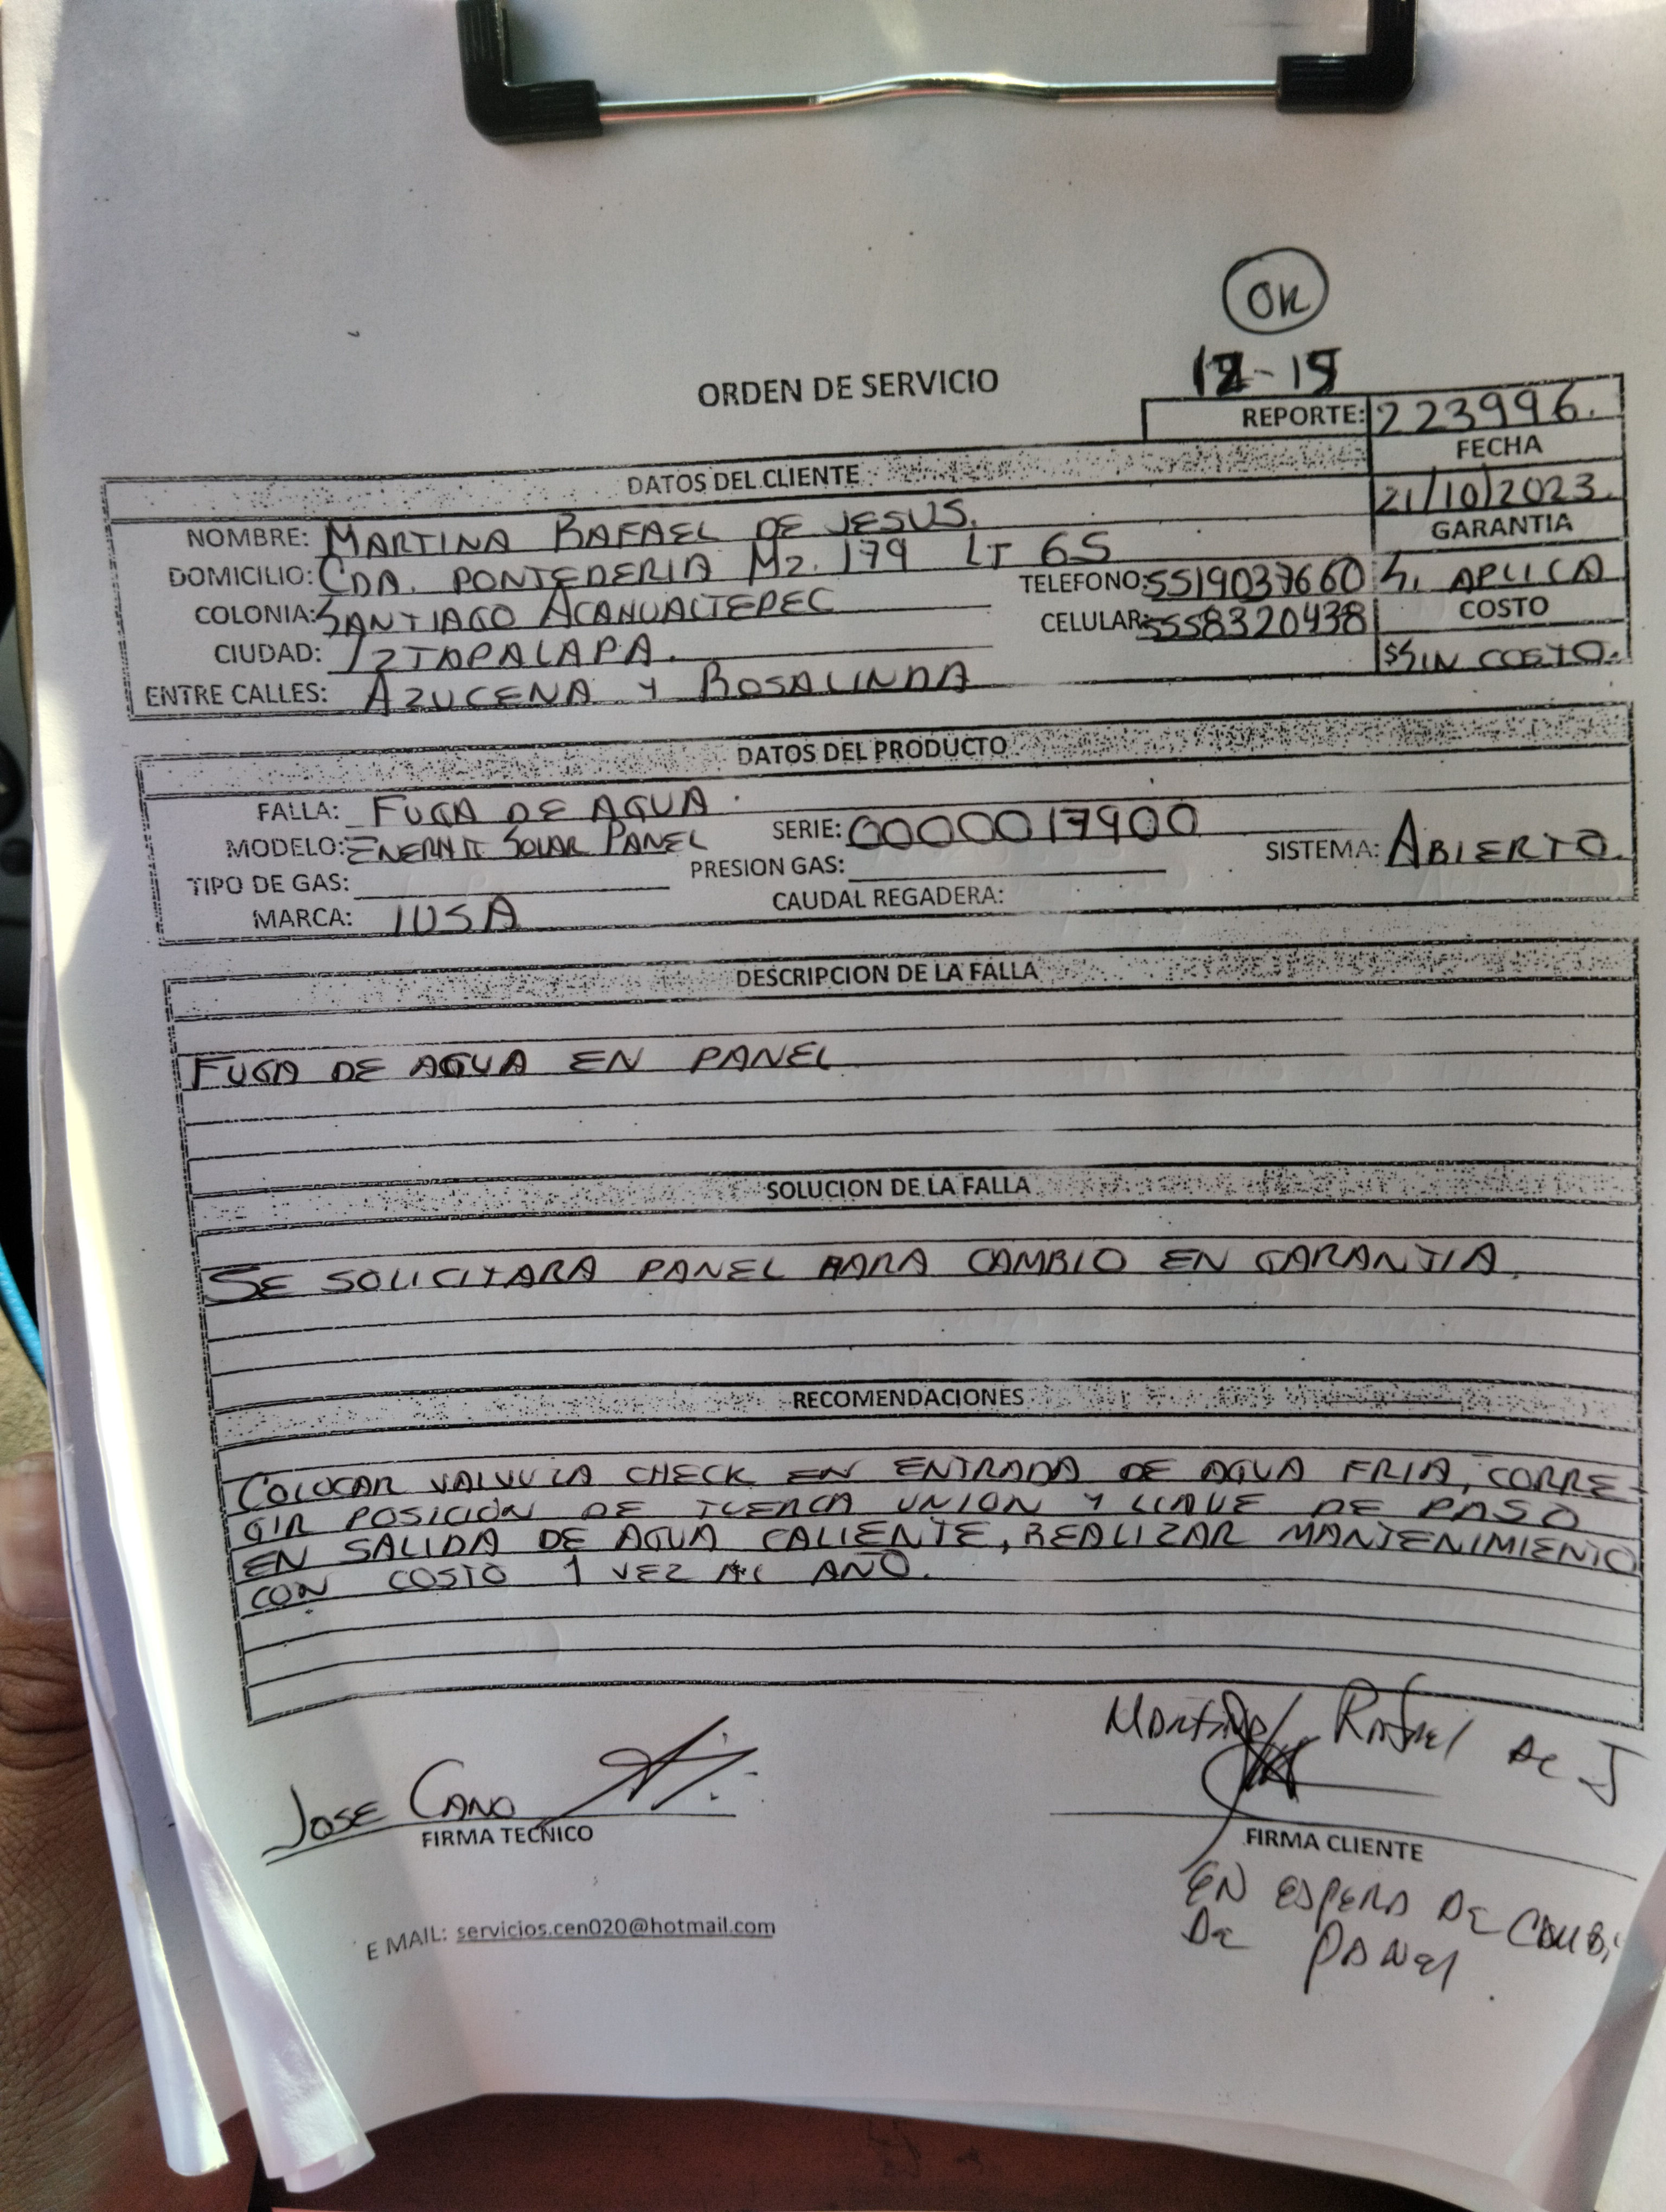 OK
12-15
ORDEN DE SERVICIO
REPORTE: 223996.
DATOS DEL CLIENTE
FECHA
21/10/2023.
NOMBRE: MARTINA RAFAEL DE JESUS.
GARANTIA
DOMICILIO: CDA. PONTEDERIA MZ. 179 LT 65
TELEFONO: 5519037660 SI APLICA
COLONIA: SANTIAGO ACAHUALTEPEC
CELULAR: 5558320438
COSTO
CIUDAD: IZTAPALAPA.
$ SIN COSTO.
ENTRE CALLES: AZUCENA Y ROSALINDA
DATOS DEL PRODUCTO
FALLA: FUGA DE AGUA.
MODELO: SOLAR PANEL SERIE: 0000017900 SISTEMA: ABIERTO.
TIPO DE GAS: PRESION GAS:
MARCA: IUSA CAUDAL REGADERA:
DESCRIPCION DE LA FALLA
FUGA DE AGUA EN PANEL
SOLUCION DE LA FALLA
SE SOLICITARA PANEL PARA CAMBIO EN GARANTIA.
RECOMENDACIONES
COLOCAR VALVULA CHECK EN ENTRADA DE AGUA FRIA, CORRE-
GIR POSICIÓN DE TUERCA UNION Y LLAVE DE PASO
EN SALIDA DE AGUA CALIENTE, REALIZAR MANTENIMIENTO
CON COSTO 1 VEZ AL AÑO.
Martina Rafael de J
JOSE CANO
FIRMA TECNICO
FIRMA CLIENTE
EN ESPERA DE CAMBIO
DE PANEL.
E MAIL: servicios.cen020@hotmail.com